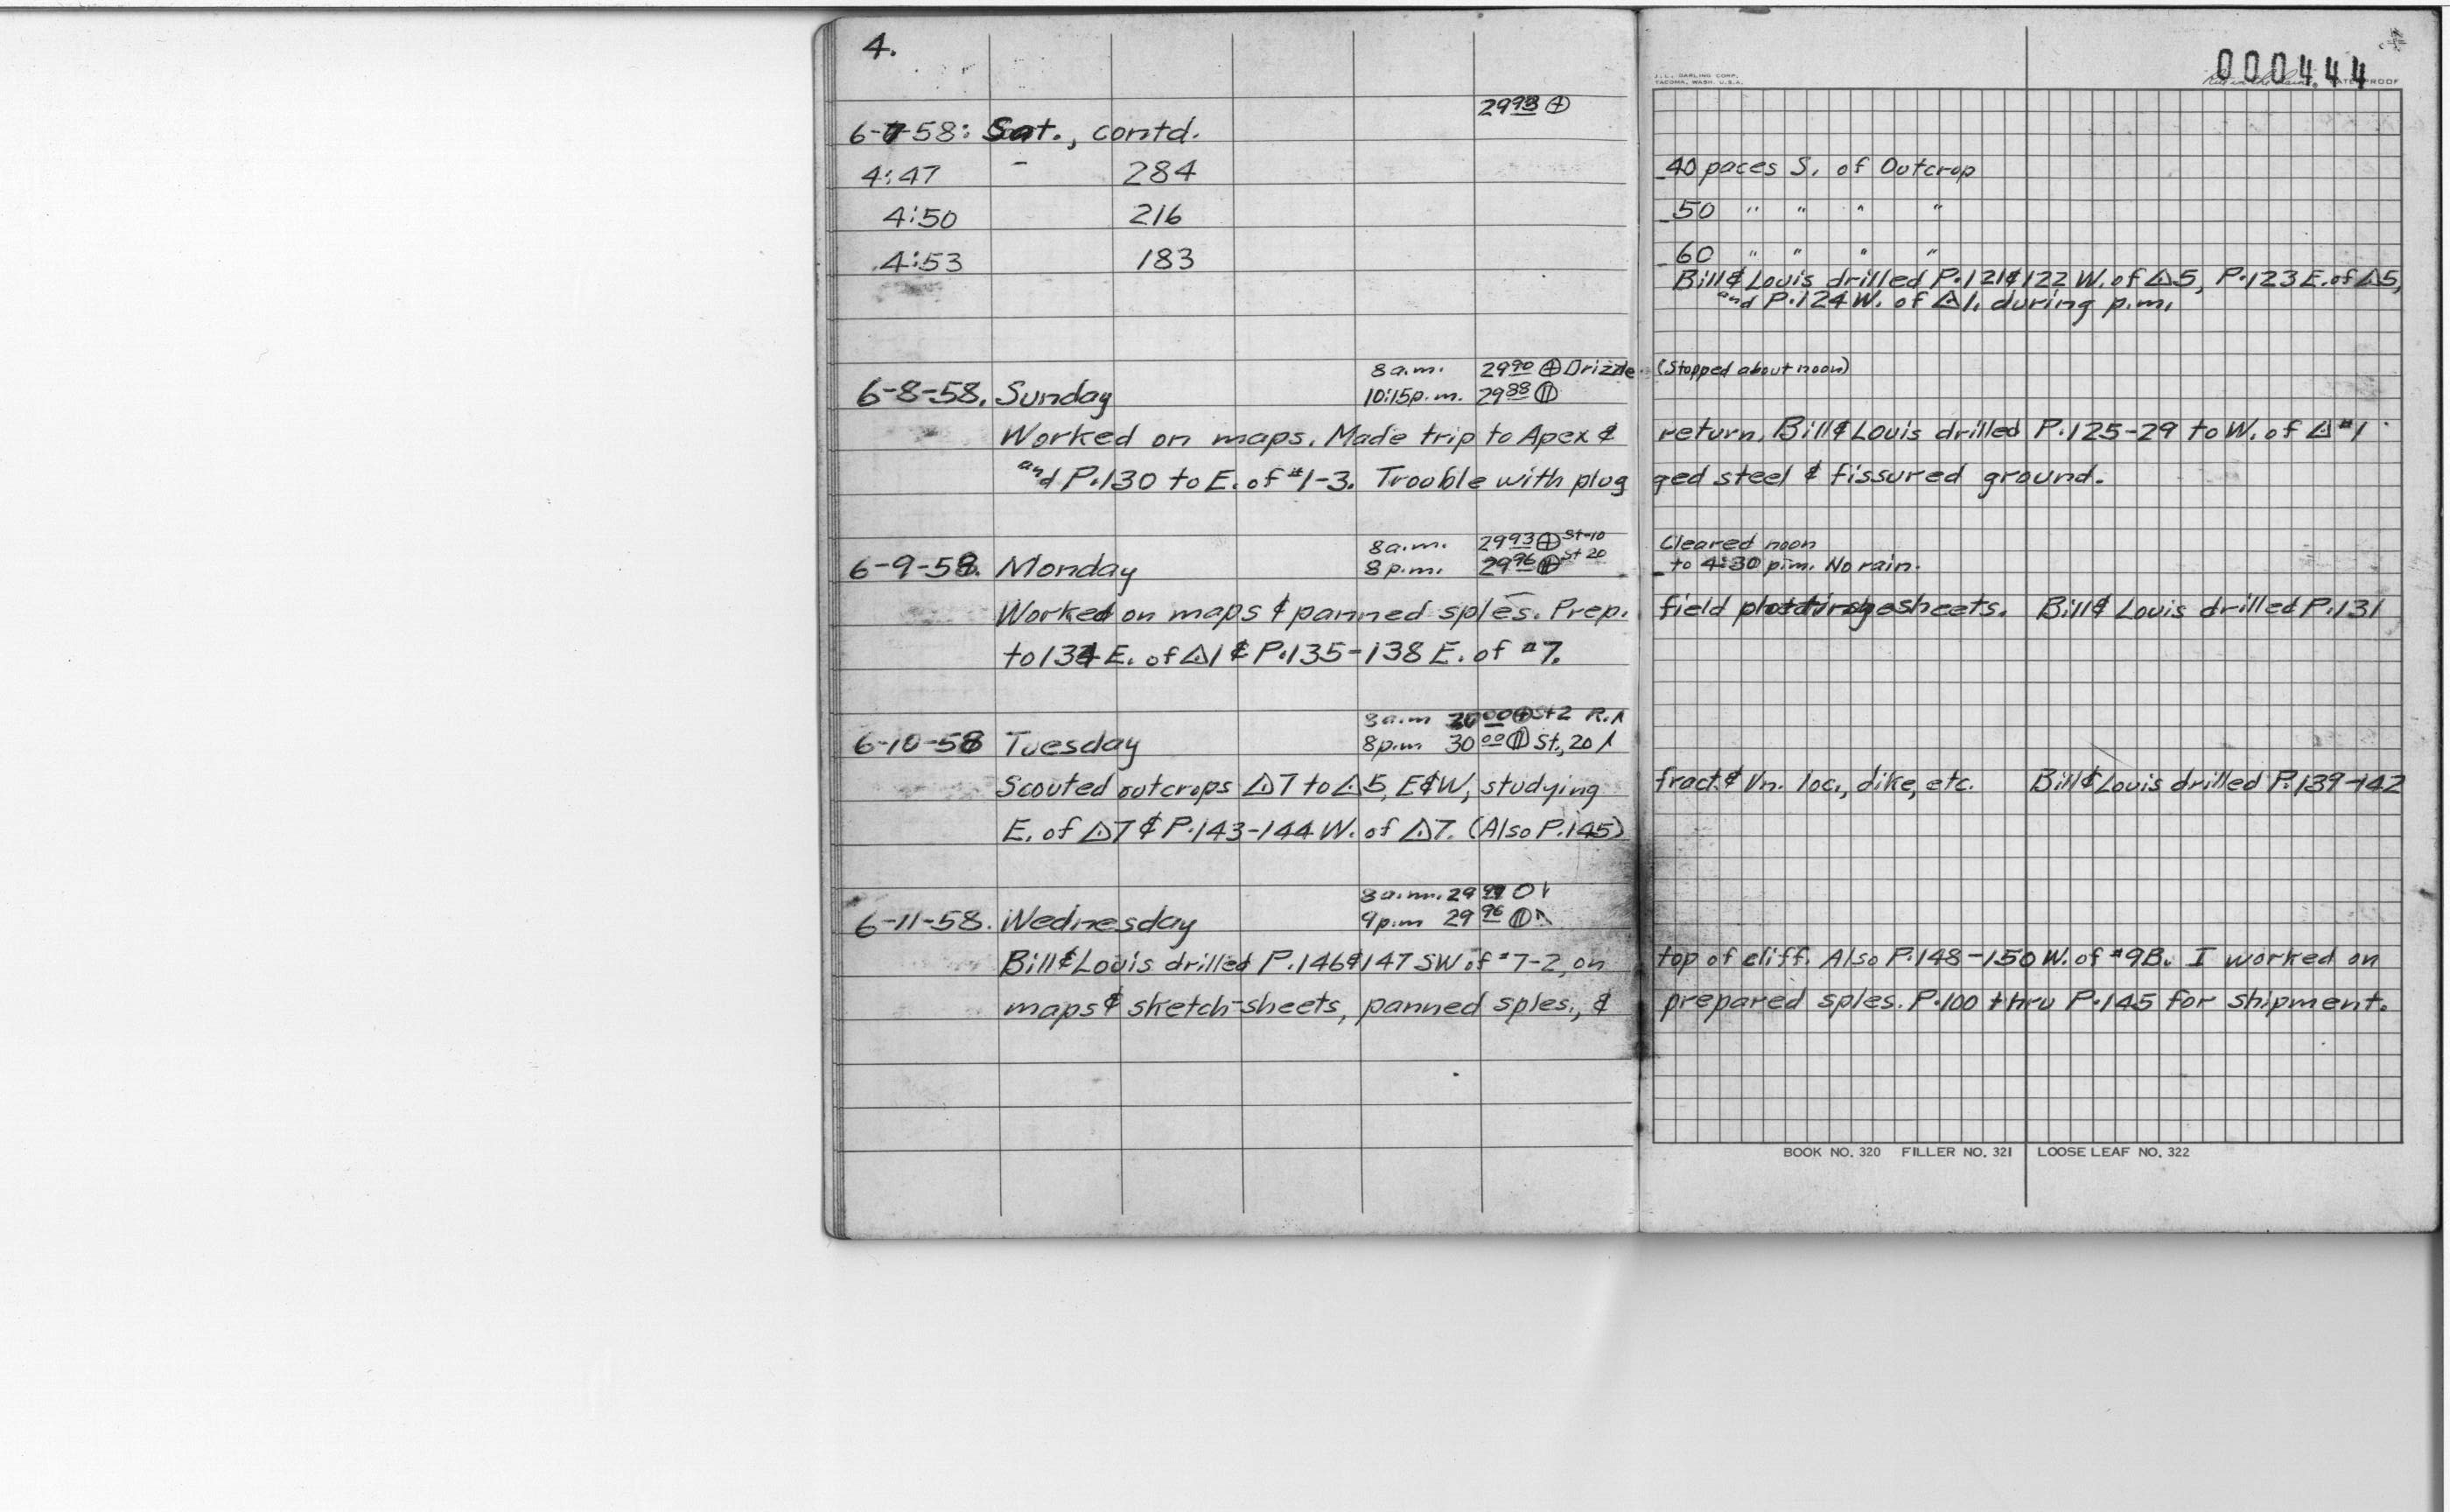 4.
000444
J. L. DARLING CORP.
TACOMA, WASH. U.S.A.
"Rite in the Rain" WATERPROOF
29 93 ⊕
6-7-58: Sat., contd.
4:47 - 284 40 paces S. of Outcrop
4:50 216 50 " " " "
4:53 183 60 " " " "
Bill & Louis drilled P.121 & 122 W. of △5, P.123 E. of △5,
and P.124 W. of △1, during p.m.
8 a.m. 29 90 ⊕ Drizzle (Stopped about noon)
6-8-58. Sunday 10:15 p.m. 29 88
Worked on maps. Made trip to Apex & return. Bill & Louis drilled P.125-29 to W. of △ #1
and P.130 to E. of #1-3. Trouble with plugged steel & fissured ground.
8 a.m. 29 93 ⊕ St-10 Cleared noon
6-9-58. Monday 8 p.m. 29 96 ⊕ St 20 to 4:30 p.m. No rain.
Worked on maps & panned sples. Prep. field sheets. Bill & Louis drilled P.131
to 134 E. of △1 & P.135-138 E. of #7.
8 a.m 30 00 ⊕ St 2 R.
6-10-58 Tuesday 8 p.m 30 00 St., 20
Scouted outcrops △7 to △5, E & W, studying fract. & Vn. loc., dike, etc. Bill & Louis drilled P.139-142
E. of △7 & P.143-144 W. of △7. (Also P.145)
8 a.m. 29 99 O
6-11-58. Wednesday 9 p.m 29 96
Bill & Louis drilled P.146 & 147 SW of #7-2, on top of cliff. Also P.148-150 W. of #9B. I worked on
maps & sketch-sheets, panned sples., & prepared sples. P.100 thru P.145 for shipment.
BOOK NO. 320 FILLER NO. 321 LOOSE LEAF NO. 322